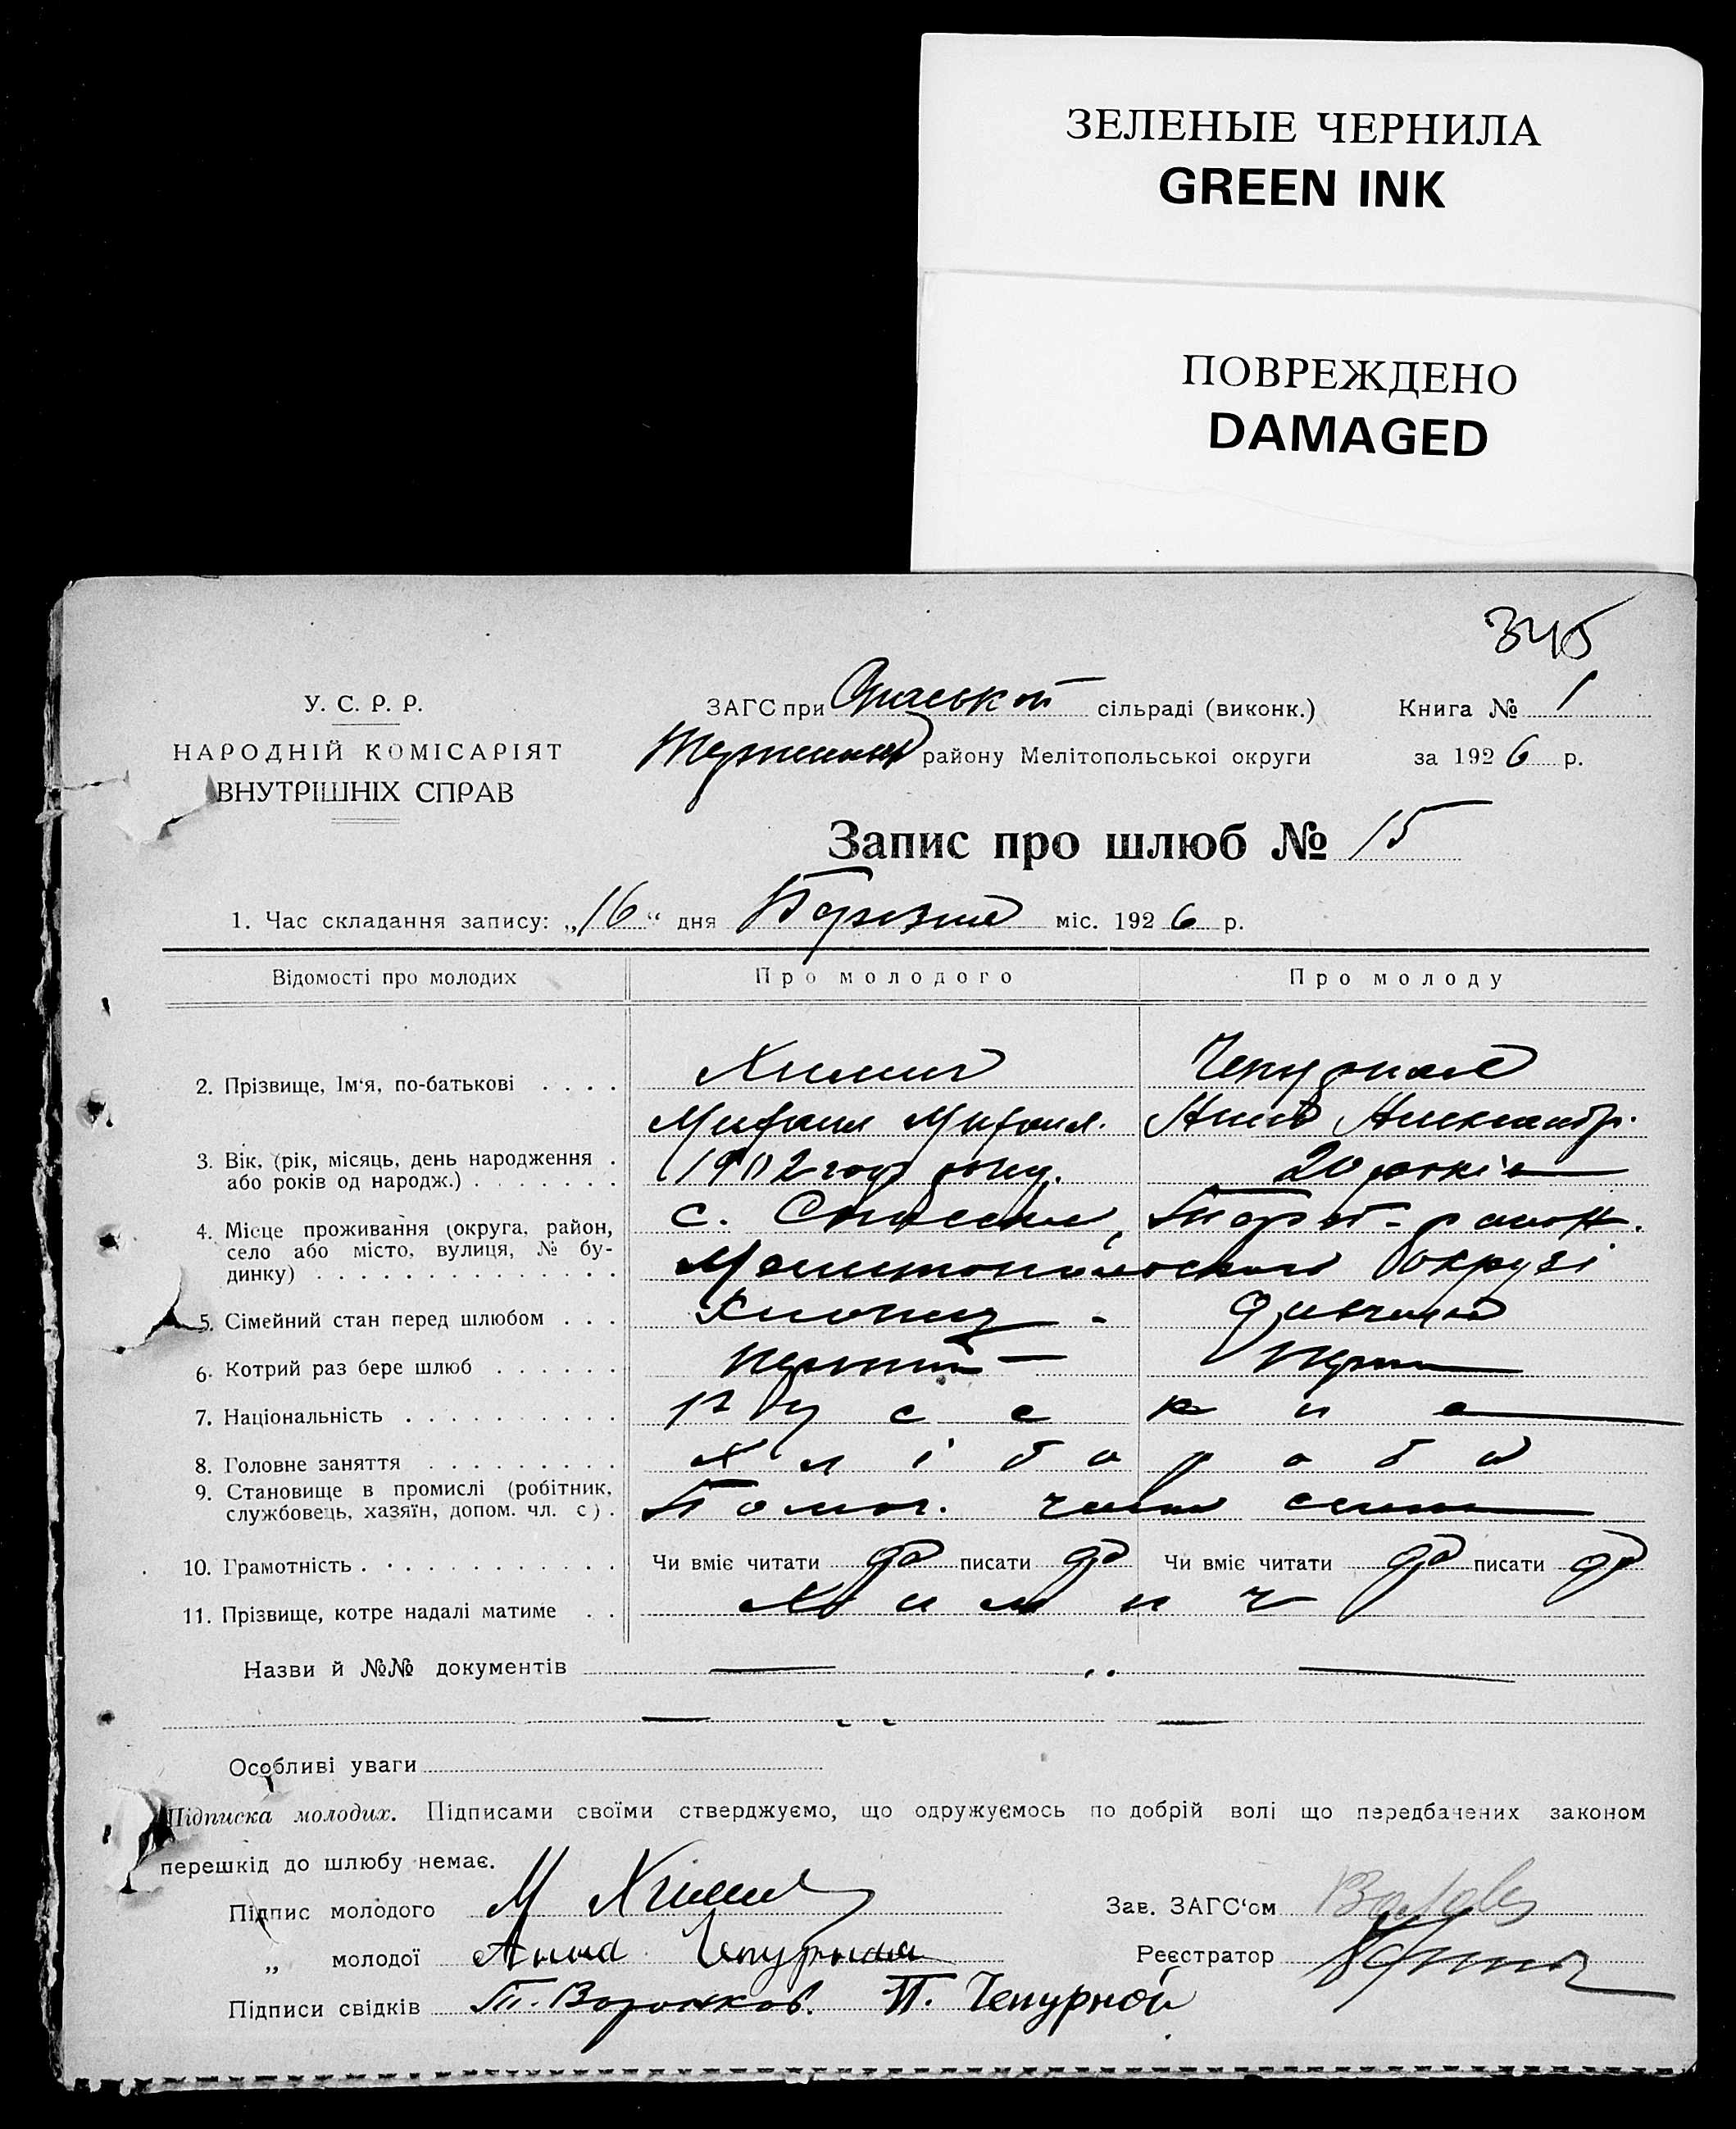 ЗЕЛЕНЫЕ ЧЕРНИЛА
GREEN INK
ПОВРЕЖДЕНО
DAMAGED
345
У. С. Р. Р.
НАРОДНІЙ КОМІСАРІЯТ
ВНУТРІШНІХ СПРАВ
ЗАГС при сільраді (виконк.) Книга № 1
району Мелітопольської округи за 1926 р.
Запис про шлюб № 15
1. Час складання запису: „16“ дня Березня міс. 1926 р.
Відомості про молодих Про молодого Про молоду
2. Прізвище, Ім'я, по-батькові . . . . Химич Чепурная
Михаил Михаил. Анна Александр.
3. Вік, (рік, місяць, день народження . або років од народж.) . . . . . . . 1902 году року. 20 років
4. Місце проживання (округа, район, село або місто, вулиця, № будинку) . . . . . . . . . . . . . . с. район.
Мелитопольского округі
5. Сімейний стан перед шлюбом . . . Хлопец - дивчина
6. Котрий раз бере шлюб . . . . . . первий перш
7. Національність . . . . . . . . . . Русские
8. Головне заняття . . . . . . . . . Хлібороби
9. Становище в промислі (робітник, службовець, хазяїн, допом. чл. с) . Помоч. член семи
10. Грамотність . . . . . . . . . . . Чи вміє читати да писати да Чи вміє читати да писати да
11. Прізвище, котре надалі матиме . . Химич
Назви й №№ документів
Особливі уваги
Підписка молодих. Підписами своїми стверджуємо, що одружуємось по добрій волі що передбачених законом
перешкід до шлюбу немає.
Підпис молодого М Химич Зав. ЗАГС'ом
„ молодої Анна Чепурная Реєстратор
Підписи свідків Т. Воронков. П. Чепурной